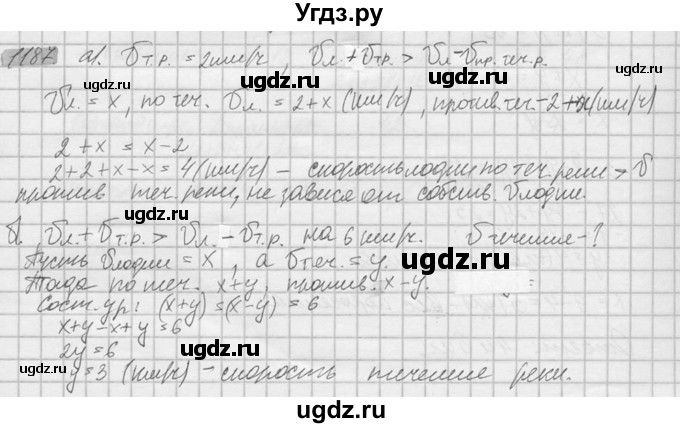 Угдз.ру
1187 а). Vт.р. = 2 км/ч, Vл. + Vтр. > Vл - Vпр. теч. р.
Vл. = x, по теч. Vл. = 2 + x (км/ч), против. теч. - 2 + x (км/ч)
ugdz.ru
2 + x = x - 2
2 + 2 + x - x = 4 (км/ч) - скорость лодки по теч. реки > V
против теч. реки, не завися от собств. Vлодки.
ugdz.ru
б. Vл. + Vт.р. > Vл. - Vт.р. на 6 км/ч. Vтечение - ?
Пусть Vлодки = x, а Vтеч. = y.
ugdz.ru
Тогда по теч. x + y, против. x - y.
Сост. ур: (x+y) = (x-y) = 6
ugdz.ru
x + y - x + y = 6
2y = 6
y = 3 (км/ч) - скорость течение реки.
ugdz.ru
ugdz.ru